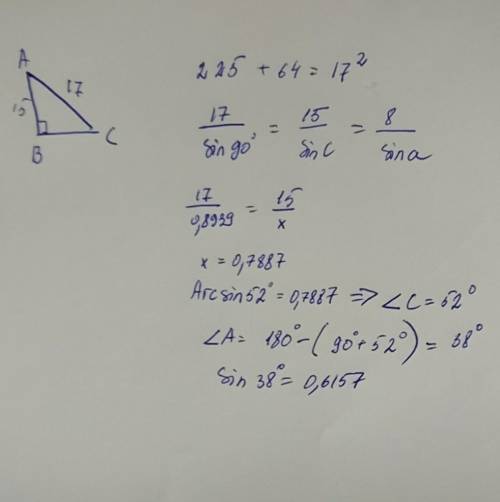 A
17
15
B
C
225 + 64 = 17²
17/sin90° = 15/sinC = 8/sina
17/0,8939 = 15/x
x = 0,7887
Arcsin52° = 0,7887 => ∠C = 52°
∠A = 180° - (90° + 52°) = 38°
sin 38° = 0,6157